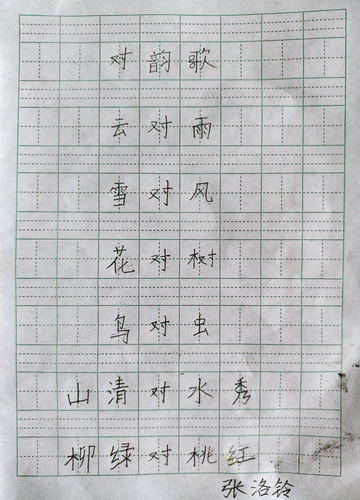 对韵歌
云对雨
雪对风
花对树
鸟对虫
山清对水秀
柳绿对桃红
张洛铃